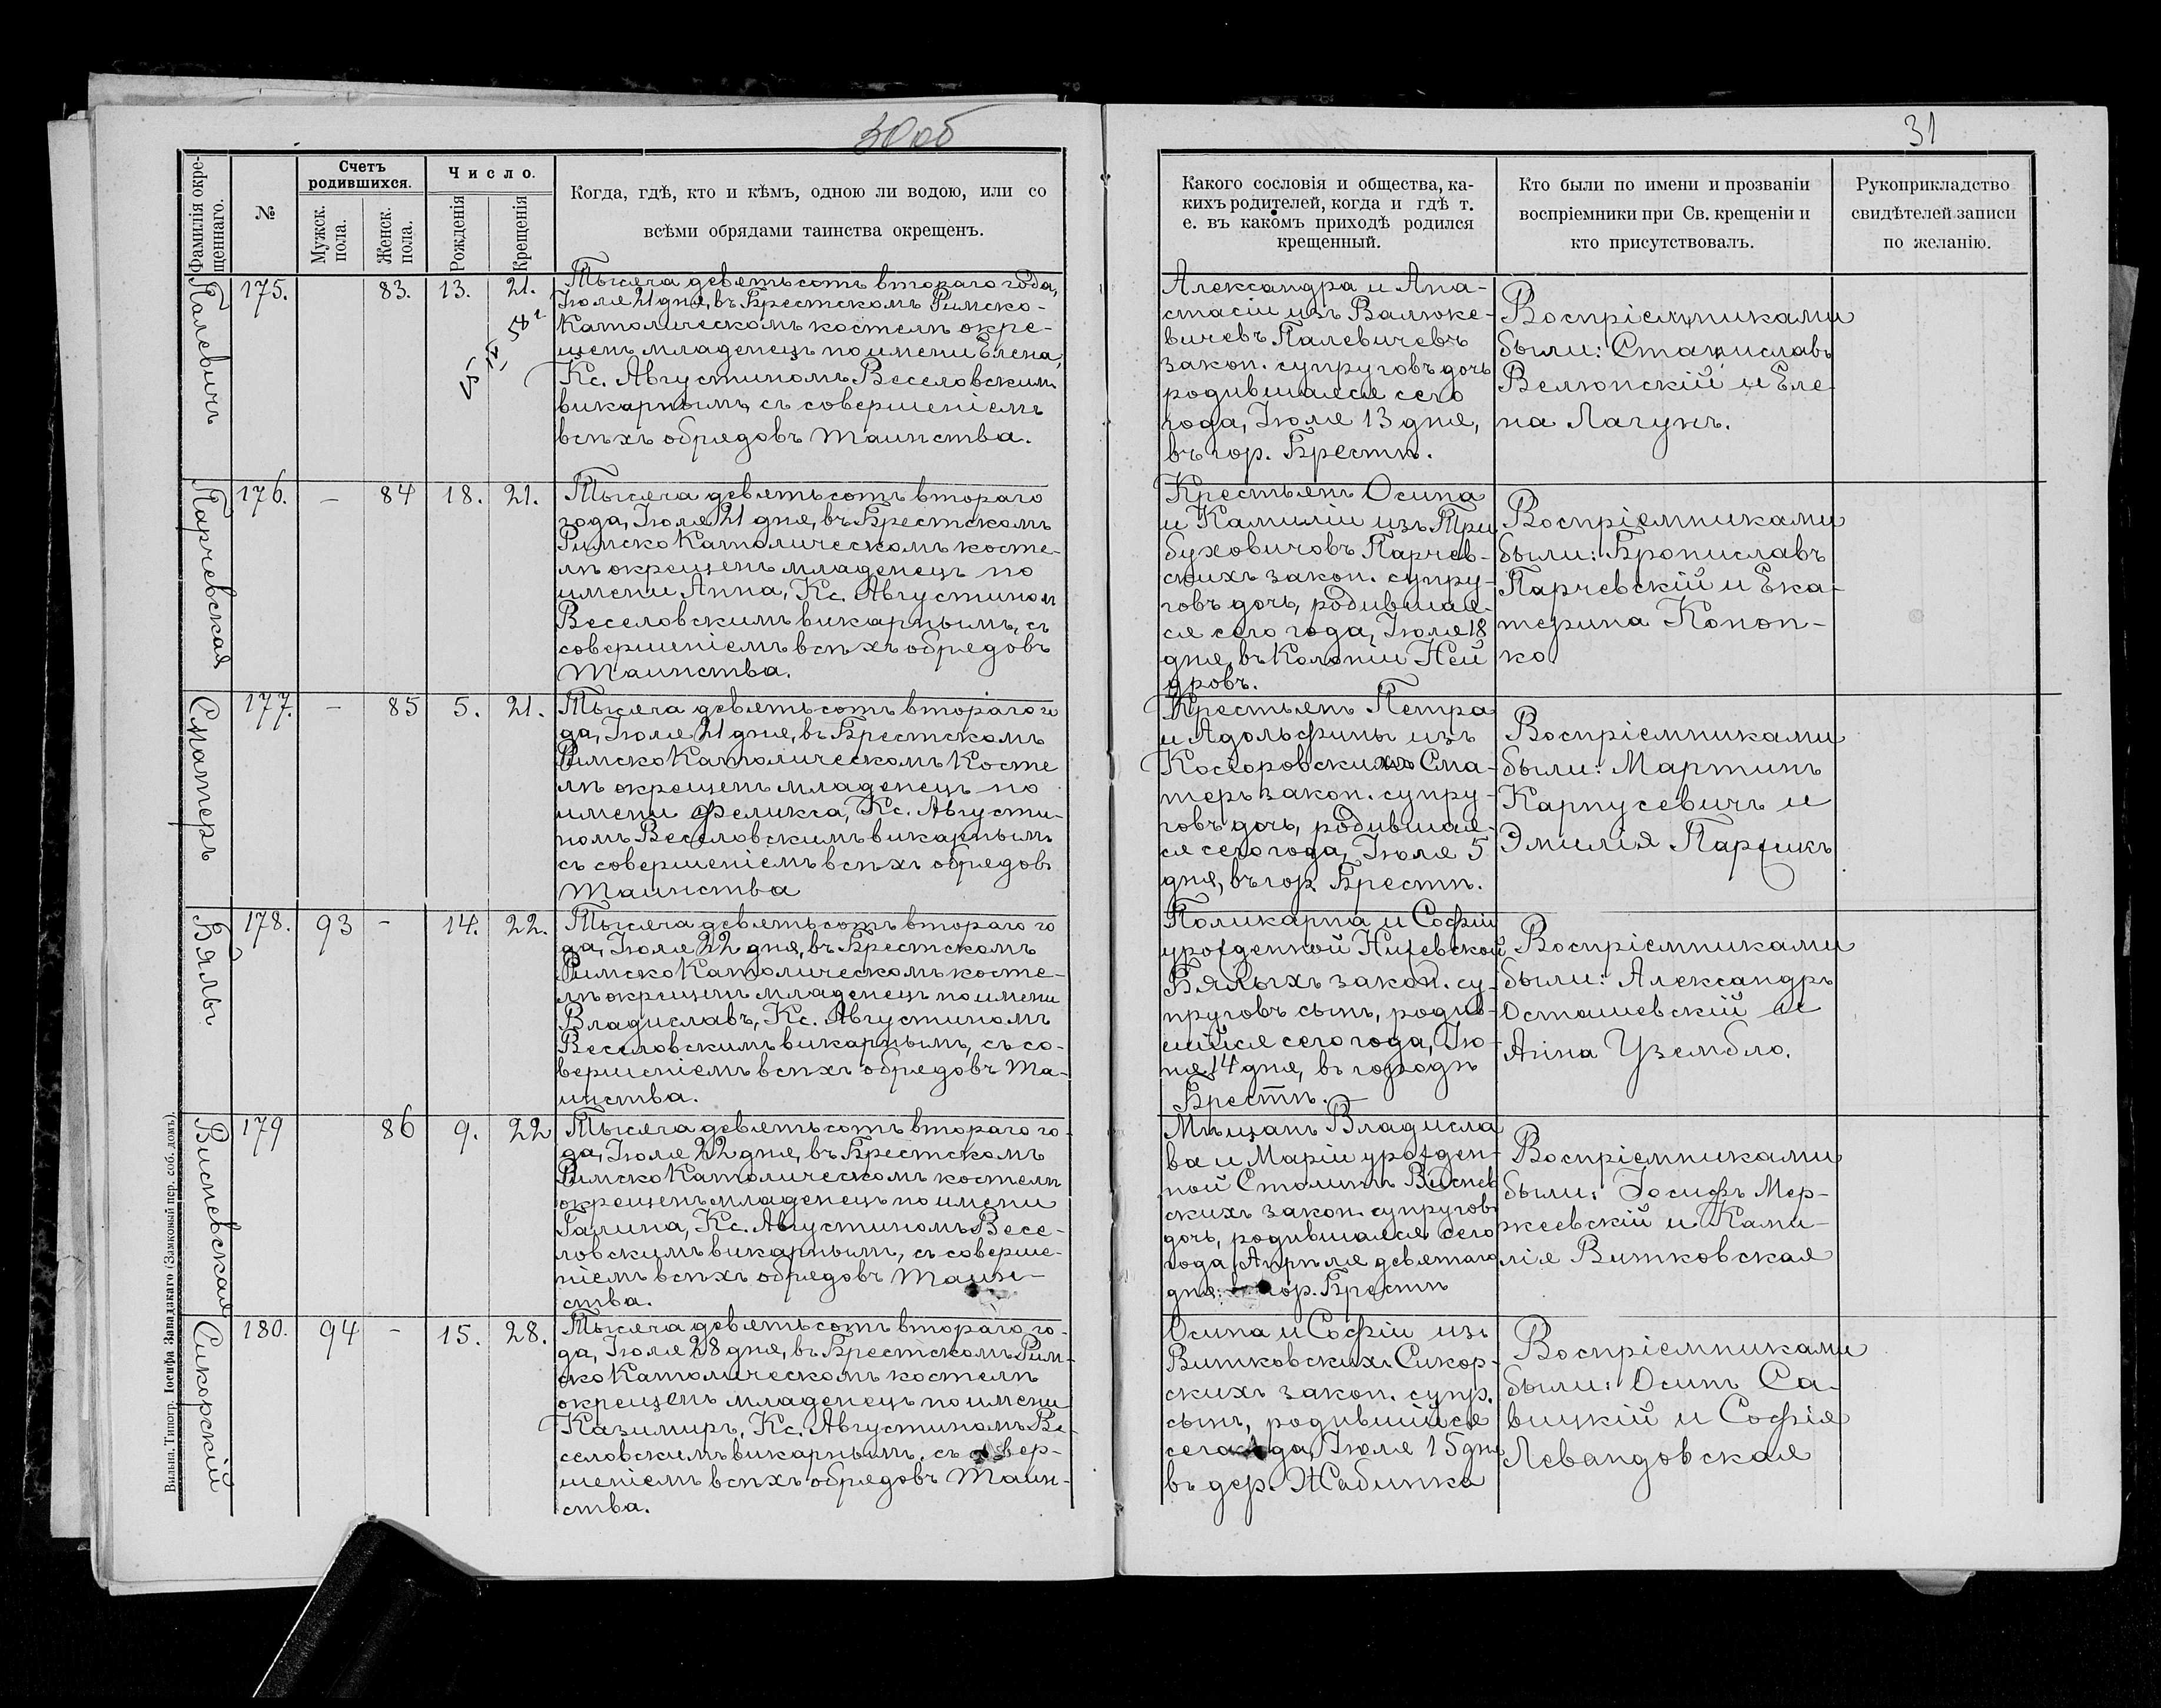 30об
31
Фамилія окре-
щеннаго.
№
Счетъ
родившихся.
Мужск.
пола.
Женск.
пола.
Число.
Рожденія
Крещенія
Когда, гдѣ, кто и кѣмъ, одною ли водою, или со
всѣми обрядами таинства окрещенъ.
Какого сословія и общества, ка-
кихъ родителей, когда и гдѣ т.
е. въ какомъ приходѣ родился
крещенный.
Кто были по имени и прозваніи
воспріемники при Св. крещеніи и
кто присутствовалъ.
Рукоприкладство
свидѣтелей записи
по желанію.
Палевичъ
175.
83.
13.
21.
Тысяча девятьсотъ втораго года,
Іюля 21 дня, въ Брестскомъ Римско-
Католическомъ костелѣ окре-
щенъ младенецъ по имени Елена,
Кс. Августиномъ Веселовскимъ
викарнымъ, съ совершеніемъ
всѣхъ обрядовъ Таинства.
Александра и Ана-
стасіи изъ Валюке-
вичевъ Палевичевъ
закон. супруговъ дочь
родившаяся сего
года, Іюля 13 дня,
въ гор. Брестѣ.
Воспріемниками
были: Станиславъ
Велюнскій и Еле-
на Лагунъ.
Парчевская
176.
–
84
18.
21.
Тысяча девятьсотъ втораго
года, Іюля 21 дня, въ Брестскомъ
Римско Католическомъ косте-
лѣ окрещенъ младенецъ по
имени Анна, Кс. Августином
Веселовскимъ викарнымъ, съ
совершеніемъ всѣхъ обрядовъ
Таинства.
Крестьянъ Осипа
и Камиліи изъ Три
буховичовъ Парчев-
скихъ закон. супру-
говъ дочь, родившая-
ся сего года, Іюля 18
дня, въ Колоніи Ней
дровъ.
Воспріемниками
были: Брониславъ
Парчевскій и Ека-
терина Конон-
ко.
Сматеръ
177.
–
85
5.
21.
Тысяча девятьсотъ втораго го
да, Іюля 21 дня, въ Брестскомъ
Римско Католическомъ Косте
лѣ окрещенъ младенецъ по
имени Феликса, Кс. Августи-
номъ Веселовскимъ викарнымъ
съ совершеніемъ всѣхъ обрядовъ
Таинства
Крестьянъ Петра
и Адольфины изъ
Косѣоровскихъ Сма-
теръ закон. супру-
говъ дочь, родившая-
ся сего года, Іюля 5
дня, въ гор. Брестѣ.
Воспріемниками
были: Мартинъ
Карпусевичъ и
Эмилія Парфикъ
Бялы
178.
93
–
14.
22.
Тысяча девятьсотъ втораго го
да, Іюля 22 дня, въ Брестскомъ
Римско Католическомъ косте-
лѣ окрещенъ младенецъ по имени
Владиславъ, Кс. Августиномъ
Веселовскимъ викарнымъ, съ со-
вершеніемъ всѣхъ обрядовъ Та-
инства.
Поликарпа и Софіи
урожденной Нижевской
Бялыхъ закон. су-
пруговъ сынъ, родив-
шійся сего года, Ію-
ня 14 дня, въ городѣ
Брестѣ.
Воспріемниками
были: Александръ
Осташевскій и
Анна Узембло.
Висневская
179
86
9.
22
Тысяча девятьсотъ втораго го-
да, Іюля 22 дня, въ Брестскомъ
Римско Католическомъ костелѣ
окрещенъ младенецъ по имени
Галина, Кс. Августиномъ Весе-
ловскимъ викарнымъ, съ соверше-
ніемъ всѣхъ обрядовъ Таин-
ства.
Мѣщанъ Владисла
ва и Маріи урожден-
ной Столинъ Виснев
скихъ закон. супруговъ
дочь, родившаяся сего
года, Апрѣля девятаго
дня: въ гор. Брестѣ
Воспріемниками
были: Іосифъ Мер-
жеевскій и Ками-
лія Витковская
Сикорскій
180.
94
–
15.
28.
Тысяча девятьсотъ втораго го-
да, Іюля 28 дня, въ Брестскомъ Рим-
ско Католическомъ костелѣ
окрещенъ младенецъ по имени
Казимиръ, Кс. Августиномъ Ве-
селовскимъ викарнымъ, съ совер-
шеніемъ всѣхъ обрядовъ Таин-
ства.
Осипа и Софіи изъ
Витковскихъ Сикор-
скихъ закон. супр.
сынъ, родившійся
сего года, Іюля 15 дня
въ дер. Жабинка
Воспріемниками
были: Осипъ Са-
вицкій и Софія
Левандовская
Вильна. Типогр. Іосифа Завадзкаго (Замковый пер. соб. домъ)